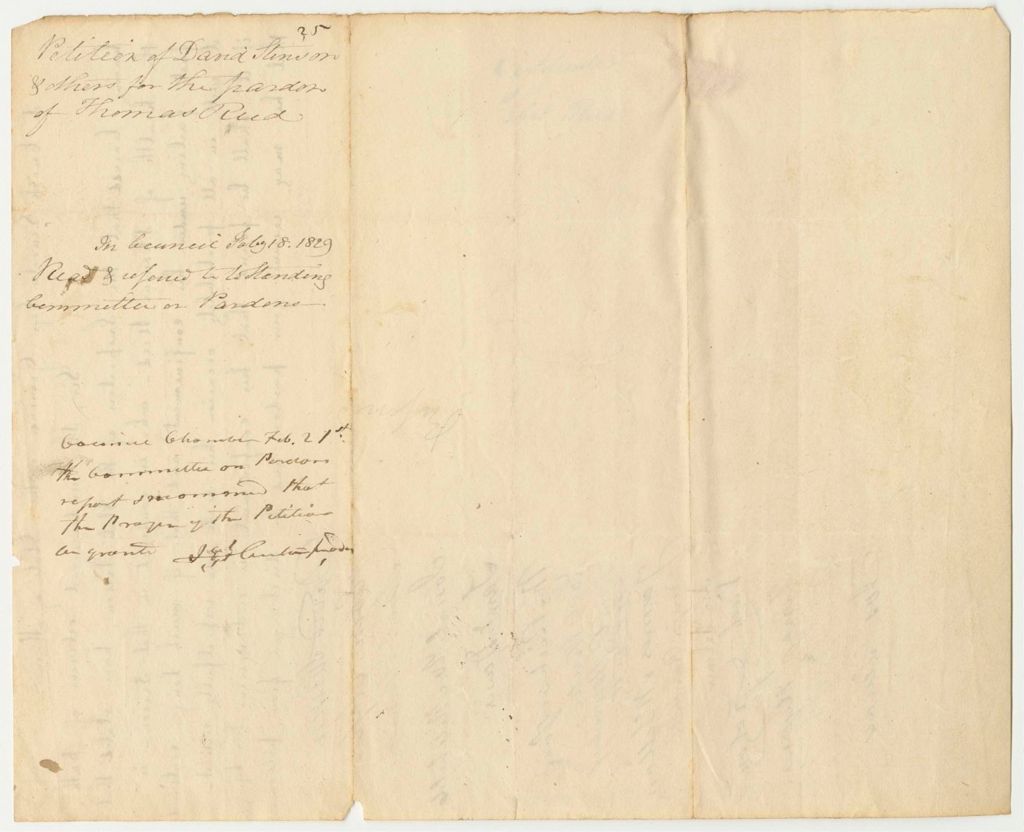 25
Petition of David Stinson
& others for the pardon
of Thomas Reed
In Council Feby 18. 1829
Read & referred to to Standing
Committee on Pardons
Council Chamber Feb. 21st
The Committee on Pardons
report & recommend that
the Prayer of the Petition
be granted